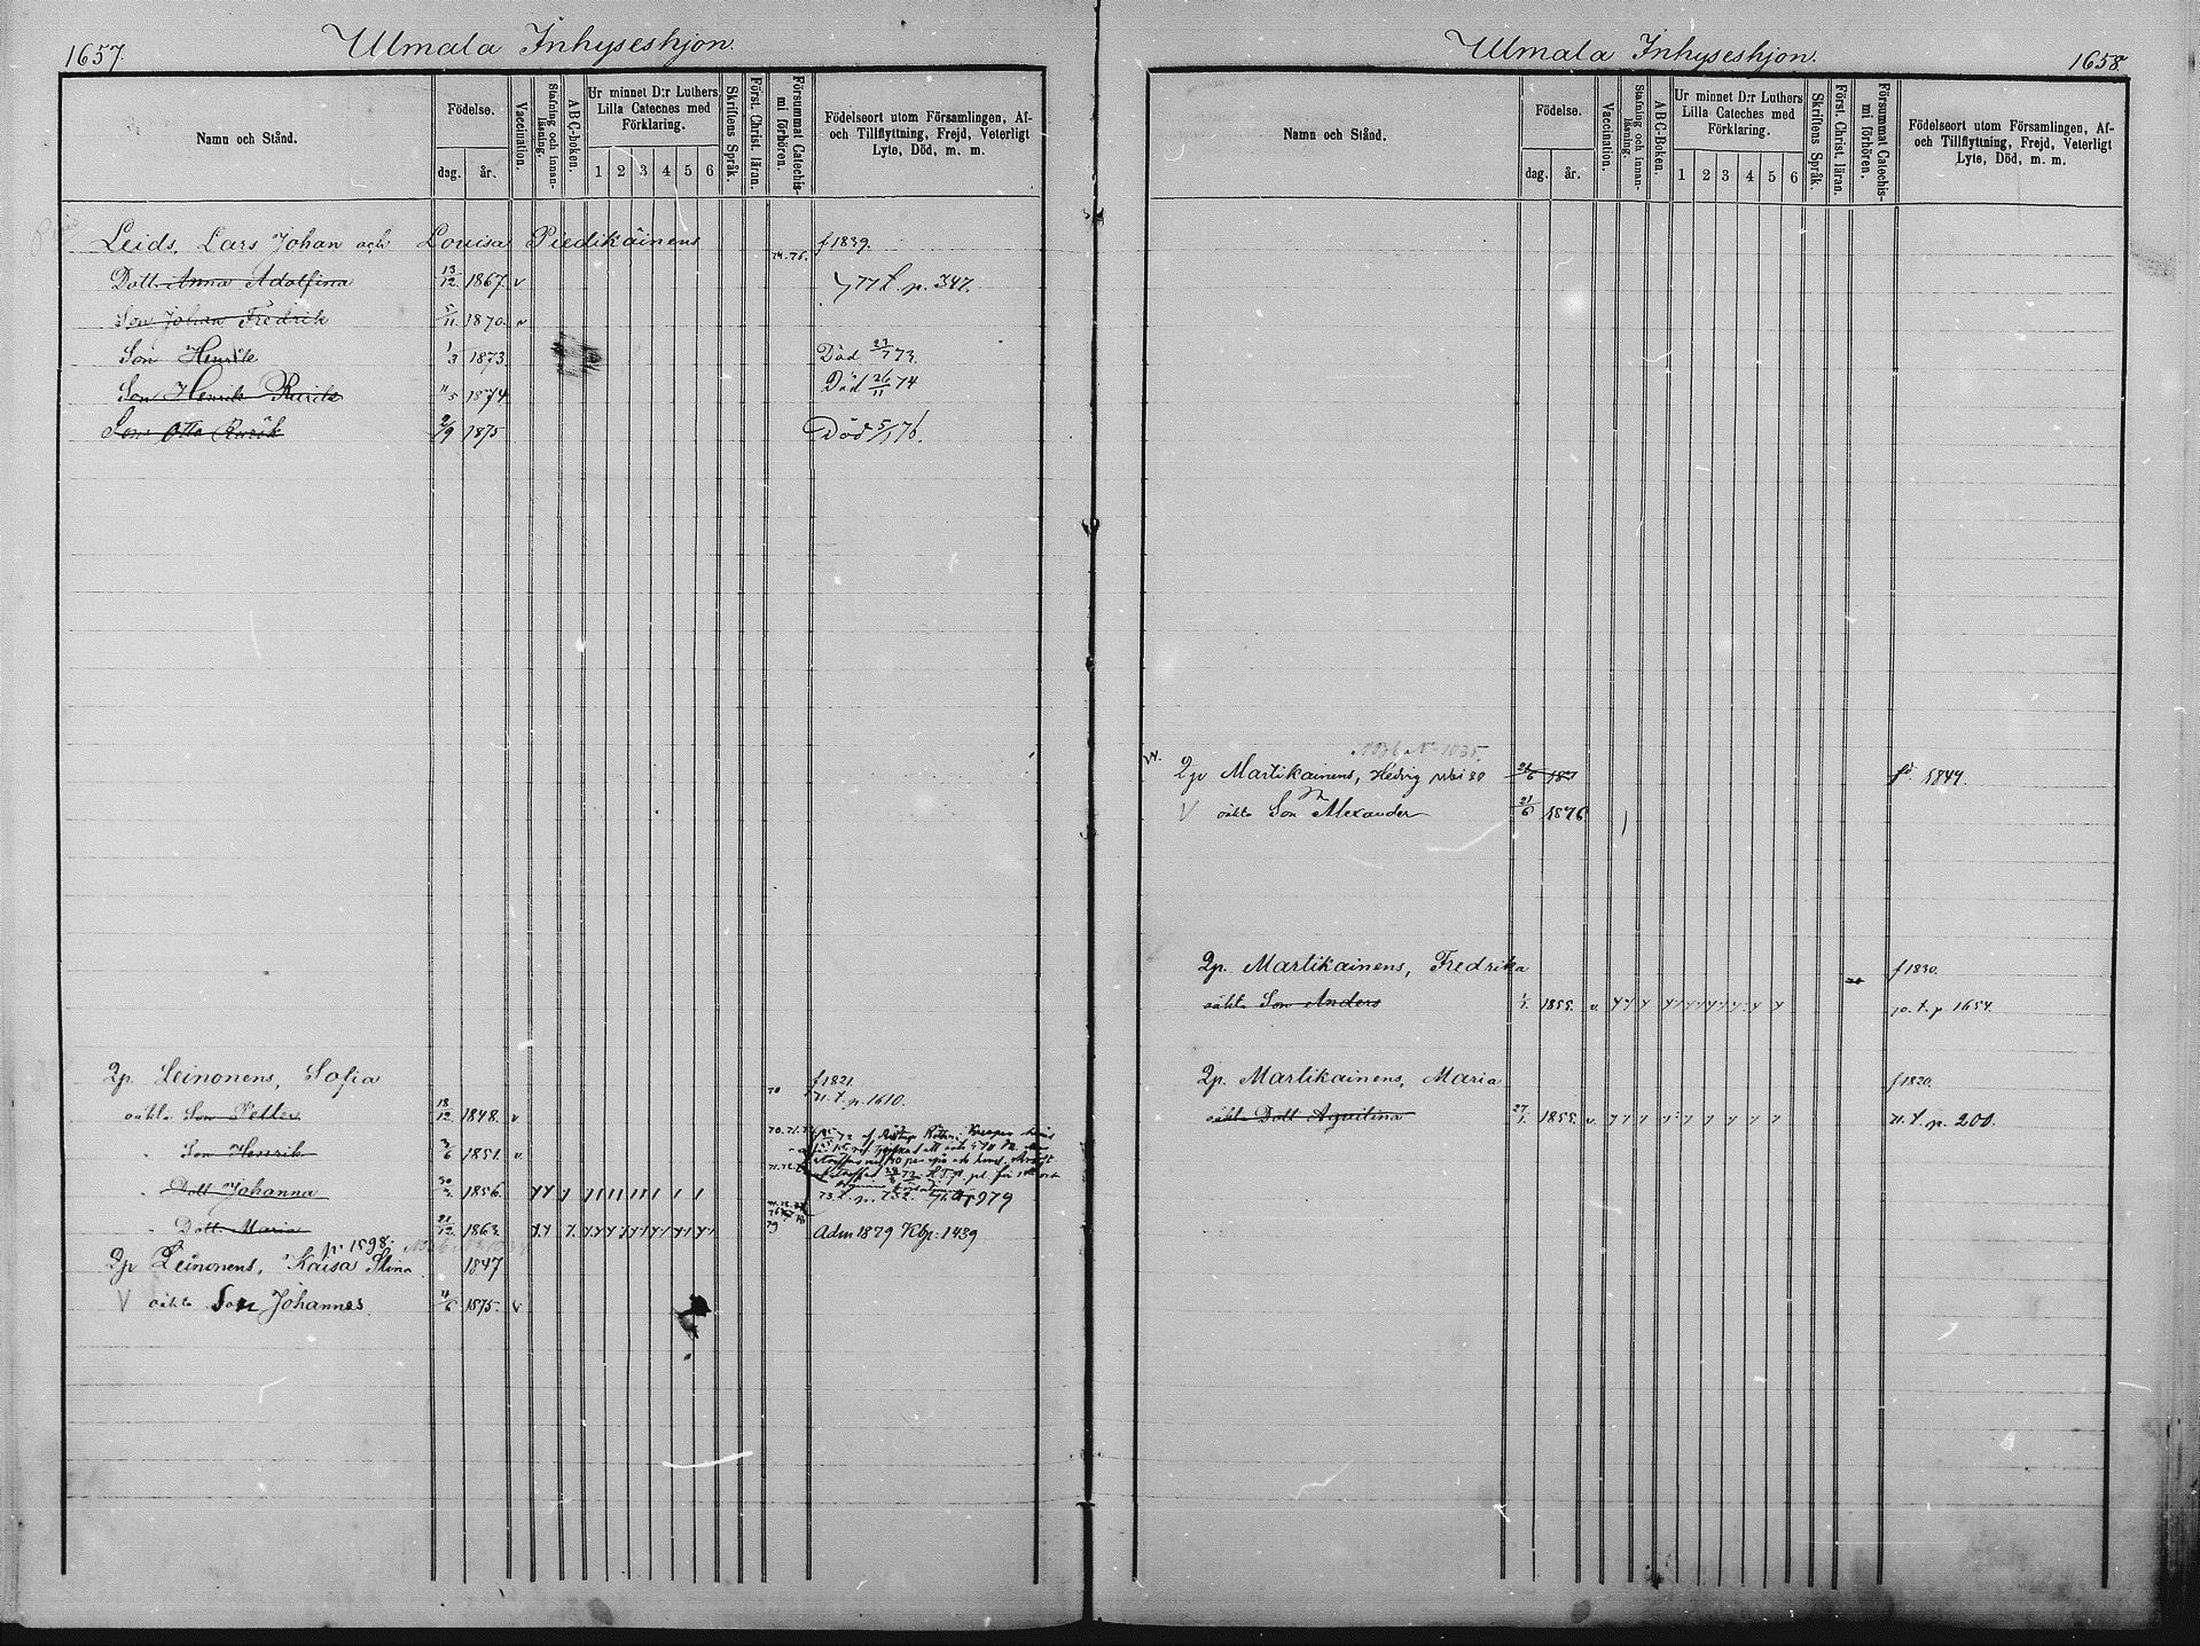 1657.
Ulmala Inhyseshjon.
Namn och Stånd.
Födelse.
dag. år.
Vaccination.
Stafning och innanläsning.
ABC-boken.
Ur minnet D:r Luthers
Lilla Cateches med
Förklaring.
1 2 3 4 5 6
Skriftens Språk.
Först. Christ. läran.
Försummat Catechismi förhören.
Födelseort utom Församlingen, Af-
och Tillflyttning, Frejd, Veterligt
Lyte, Död, m. m.
Leids, Lars Johan och Louisa Piedikäinens f 1839.
74. 76.
Dott. Anna Adolfina 13/12 1867. v 77 t. p. 347.
Son Johan Fredrik 5/11 1870. v
Son Henrik 1/3 1873 Död 23/7 73.
Son Henrik Rurik 11/5 1874 Död 26/11 74
Son Otto Rurik 2/9 1875 Död 5/1 76.
Qp. Leinonens, Sofia f 1821.
oäkta Son Petter 18/12 1848. v 70 71. t. p. 1610.
Son Henrik 3/6 1851. v. 70. 71. 72
Dott Johanna 30/3 1856. 73. t. p. 979
Dott Maria 21/12 1863. 79 Adm 1879 Kbp: 1439
p. 1598.
Qp Leinonens, Kaisa Stina 1847
V oäkta Son Johannes. 4/6 1875. v
Ulmala Inhyseshjon.
1658.
Namn och Stånd.
Födelse.
dag. år.
Vaccination.
Stafning och innanläsning.
ABC-Boken.
Ur minnet D:r Luthers
Lilla Cateches med
Förklaring.
1 2 3 4 5 6
Skriftens Språk.
Först. Christ. läran.
Försummat Catechismi förhören.
Födelseort utom Församlingen, Af-
och Tillflyttning, Frejd, Veterligt
Lyte, Död, m. m.
Qp Martikainens, Hedvig fd. 1849.
V oäkta Son Alexander 21/6 1876
Qp. Martikainens, Fredrika f 1830.
oäkta Son Anders 1/1. 1855. v. 70. t. p. 1654.
Qp. Martikainens, Maria f 1820.
oäkta Dott Agvilina 27/1. 1855. v. 71. t. p. 200.